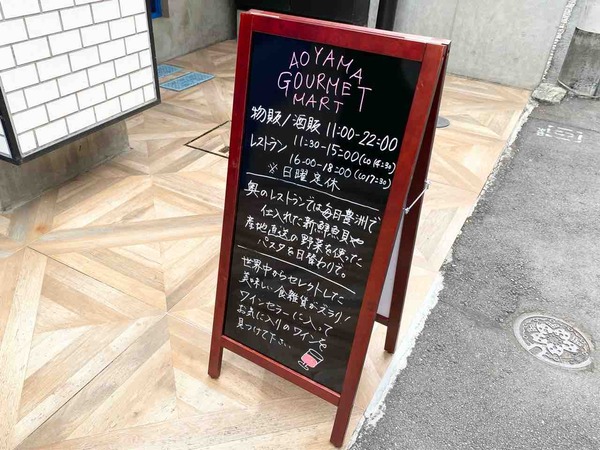 AOYAMA
GOURMET
MART
物販/酒販 11:00-22:00
レストラン 11:30-15:00(LO 14:30)
16:00-18:00(LO 17:30)
※日曜定休
奥のレストランでは毎日豊洲で
仕入れた新鮮魚貝や
産地直送の野菜を使った
パスタを日替わりで。
世界中からセレクトした
美味しい食雑貨がズラリ!
ワインセラーに入って
お気に入りのワインを
見つけて下さい